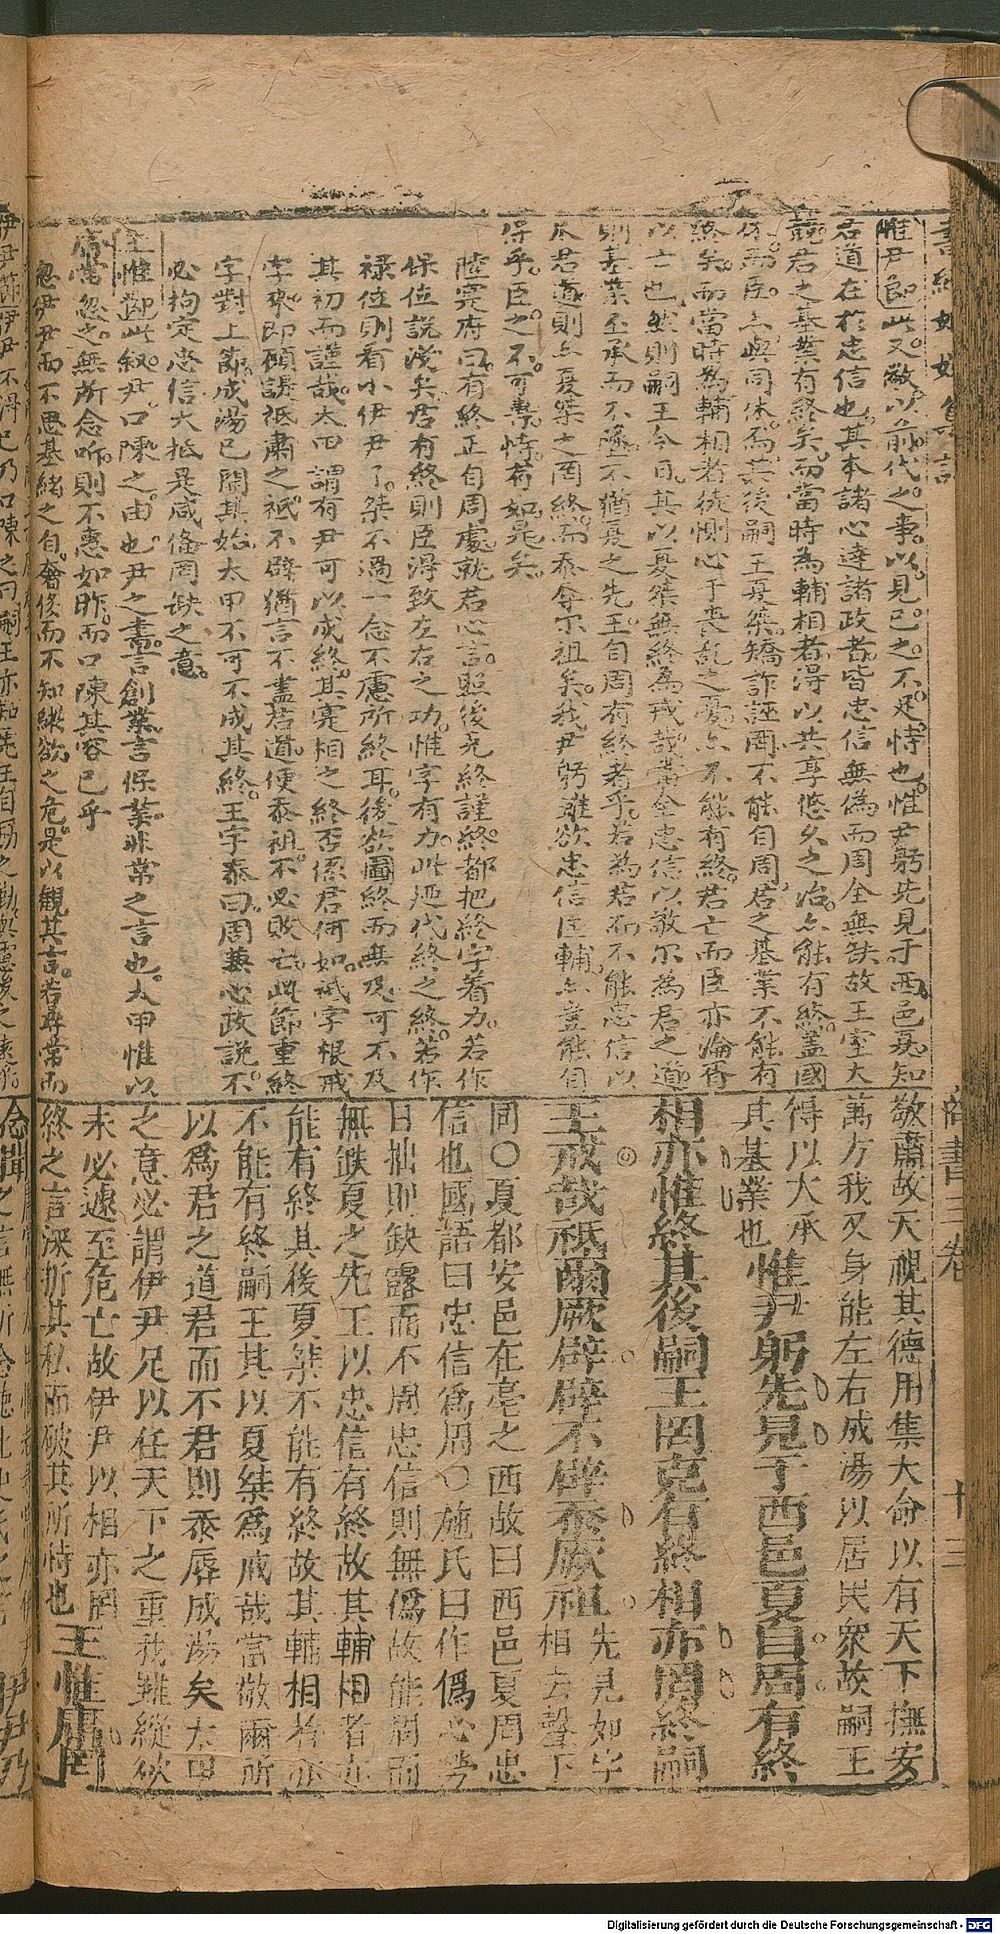 惟尹節此又敬以前代之事以見已之不足恃也惟尹躬先見于西邑夏知
君道在於忠信也其本諸心達諸政者皆忠信無偽而周全無缺故王室大
競君之基業有終矣而當時為輔相者得以共享悠久之治亦能有終蓋國
休而臣亦與同休焉其後嗣王夏桀矯詐誣罔不能自周君之基業不能有
終矣而當時為輔相者徒惻心于喪亂之憂亦不能有終君亡而臣亦淪胥
以亡也然則嗣王今日其以夏桀無終為戒哉當全忠信以敬尔為君之道
則基業丕承而不墜不猶夏之先王自周有終者乎若為君而不能忠信以
君道則亦夏桀之罔終而忝辱尔祖矣我尹躬雖欲忠信匡輔亦豈能自
保乎臣之不可專恃有如是矣
陸實府曰有終正自周處就君心言照後克終謹終都把終字着力若作
保位説淺矣君有終則臣得致左右之功惟字有力此廼代終之終若作
祿位則看小伊尹了桀不過一念不慮所終耳後欲圖終而無及可不及
其初而謹哉太甲謂有尹可以成終其寔相之終否係君何如祗字根戒
字來即顧諟祗肅之祗不辟猶言不盡君道便忝祖不必敗亡此節重終
字對上節成湯已開其始太甲不可不成其終王字泰曰周兼心政説不
必拘定忠信大抵是咸脩罔缺之意
王惟節此叙尹口陳之由也尹之書言創業言保業非常之言也太甲惟以
庸常忽之無所念听則不惠如昨而口陳其容已乎
忽伊尹而不思基緒之自會侈而不知縱欲之危是以觀其言若尋常而
敬肅故天視其德用集大命以有天下撫安
萬方我又身能左右成湯以居民衆故嗣王
得以大承其基業也惟尹躬先見于西邑夏自周有終
相亦惟終其後嗣王罔克有終相亦罔終嗣
王戒哉祗爾厥辟辟不辟忝厥祖先見如字相去聲下
同○夏都安邑在亳之西故曰西邑夏周忠
信也國語曰忠信爲周○施氏曰作僞心勞
日拙則缺露而不周忠信則無僞故能周而
無缺夏之先王以忠信有終故其輔相者亦
能有終其後夏桀不能有終故其輔相者亦
不能有終嗣王其以夏桀爲戒哉當敬爾所
以爲君之道君而不君則忝辱成湯矣太甲
之意必謂伊尹足以任天下之重我雖縱欲
未必遽至危亡故伊尹以相亦罔
終之言深折其私而破其所恃也王惟庸罔
伊尹節伊尹不得已乃口陳之曰嗣王亦知先王自勗之勤與慮後之遠乎
念聞